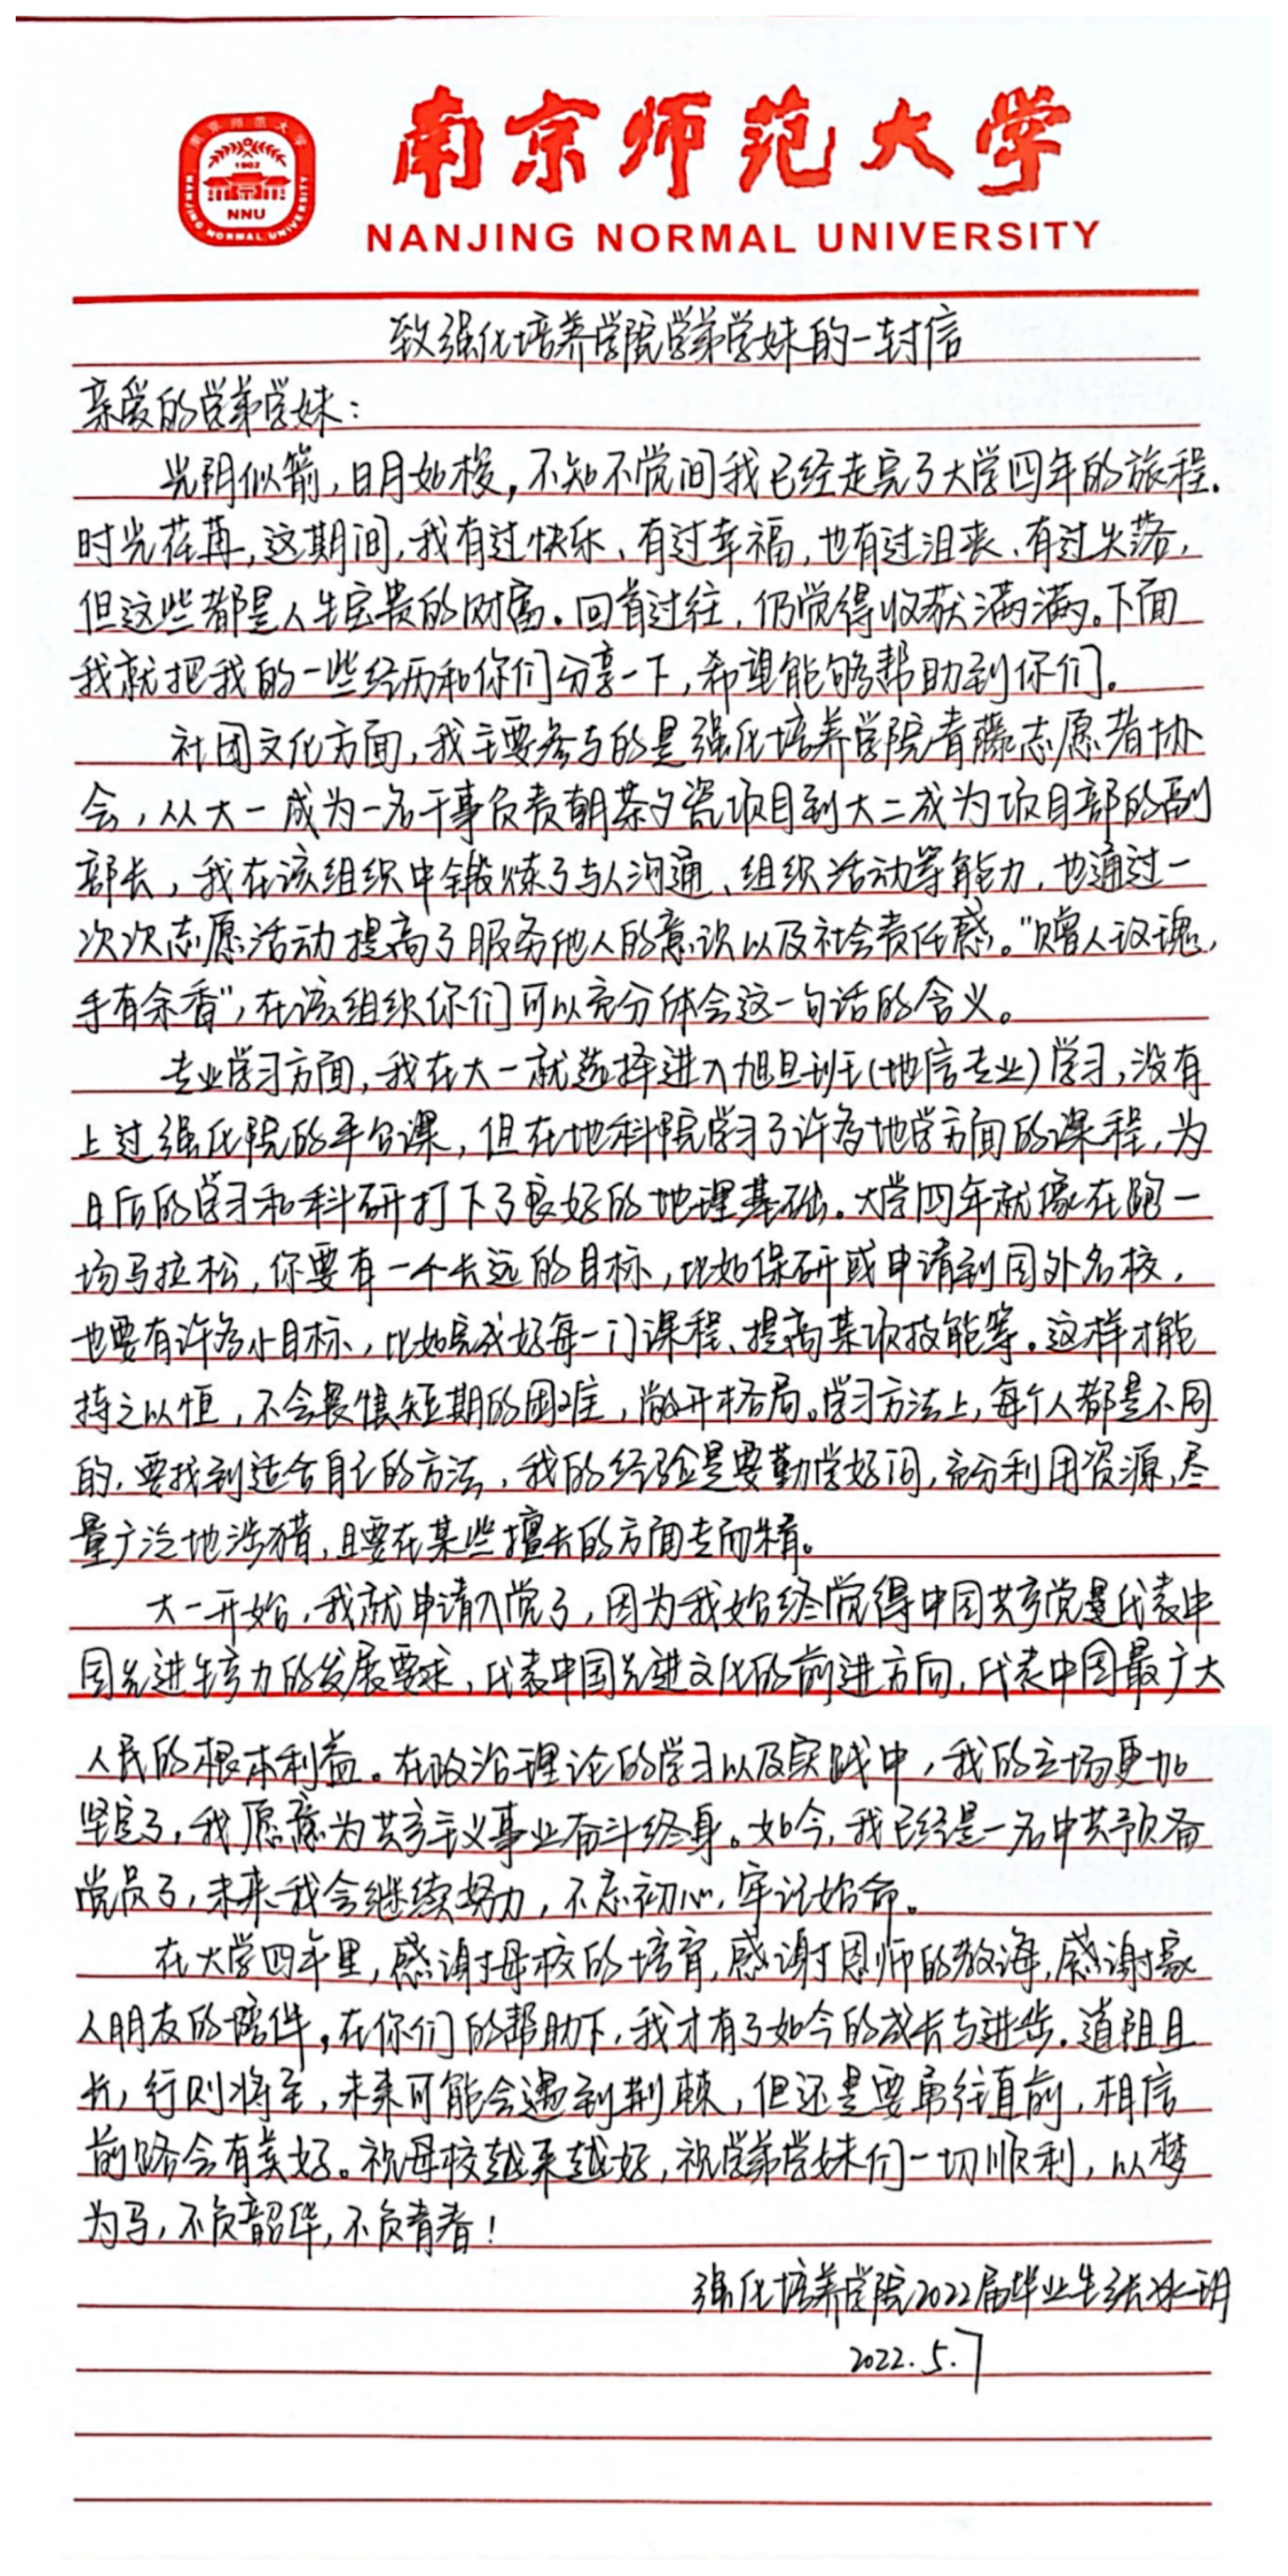 南京师范大学
1902
NNU
NANJING NORMAL UNIVERSITY
南京师范大学
NANJING NORMAL UNIVERSITY
致强化培养学院学弟学妹的一封信
亲爱的学弟学妹：
光阴似箭，日月如梭，不知不觉间我已经走完了大学四年的旅程。
时光荏苒，这期间，我有过快乐、有过幸福，也有过沮丧、有过失落，
但这些都是人生宝贵的财富。回首过往，仍觉得收获满满。下面
我就把我的一些经历和你们分享一下，希望能够帮助到你们。
社团文化方面，我主要参与的是强化培养学院青藤志愿者协
会，从大一成为一名干事负责朝茶夕瓷项目到大二成为项目部的副
部长，我在该组织中锻炼了与人沟通、组织活动等能力，也通过一
次次志愿活动提高了服务他人的意识以及社会责任感。“赠人玫瑰，
手有余香”，在该组织你们可以充分体会这一句话的含义。
专业学习方面，我在大一就选择进入旭旦班（地信专业）学习，没有
上过强化院的平台课，但在地科院学习了许多地学方面的课程，为
日后的学习和科研打下了良好的地理基础。大学四年就像在跑一
场马拉松，你要有一个长远的目标，比如保研或申请到国外名校，
也要有许多小目标，比如完成好每一门课程、提高某项技能等。这样才能
持之以恒，不会畏惧短期的困难，敞开格局。学习方法上，每个人都是不同
的，要找到适合自己的方法，我的经验是要勤学好问，充分利用资源，尽
量广泛地涉猎，且要在某些擅长的方面专而精。
大一开始，我就申请入党了，因为我始终觉得中国共产党是代表中
国先进生产力的发展要求，代表中国先进文化的前进方向，代表中国最广大
人民的根本利益。在政治理论的学习以及实践中，我的立场更加
坚定了，我愿意为共产主义事业奋斗终身。如今，我已经是一名中共预备
党员了，未来我会继续努力，不忘初心，牢记始命。
在大学四年里，感谢母校的培育，感谢恩师的教诲，感谢家
人朋友的陪伴。在你们的帮助下，我才有了如今的成长与进步。道阻且
长，行则将至，未来可能会遇到荆棘，但还是要勇往直前，相信
前路会有美好。祝母校越来越好，祝学弟学妹们一切顺利，以梦
为马，不负韶华，不负青春！
强化培养学院2022届毕业生张冰玥
2022.5.7